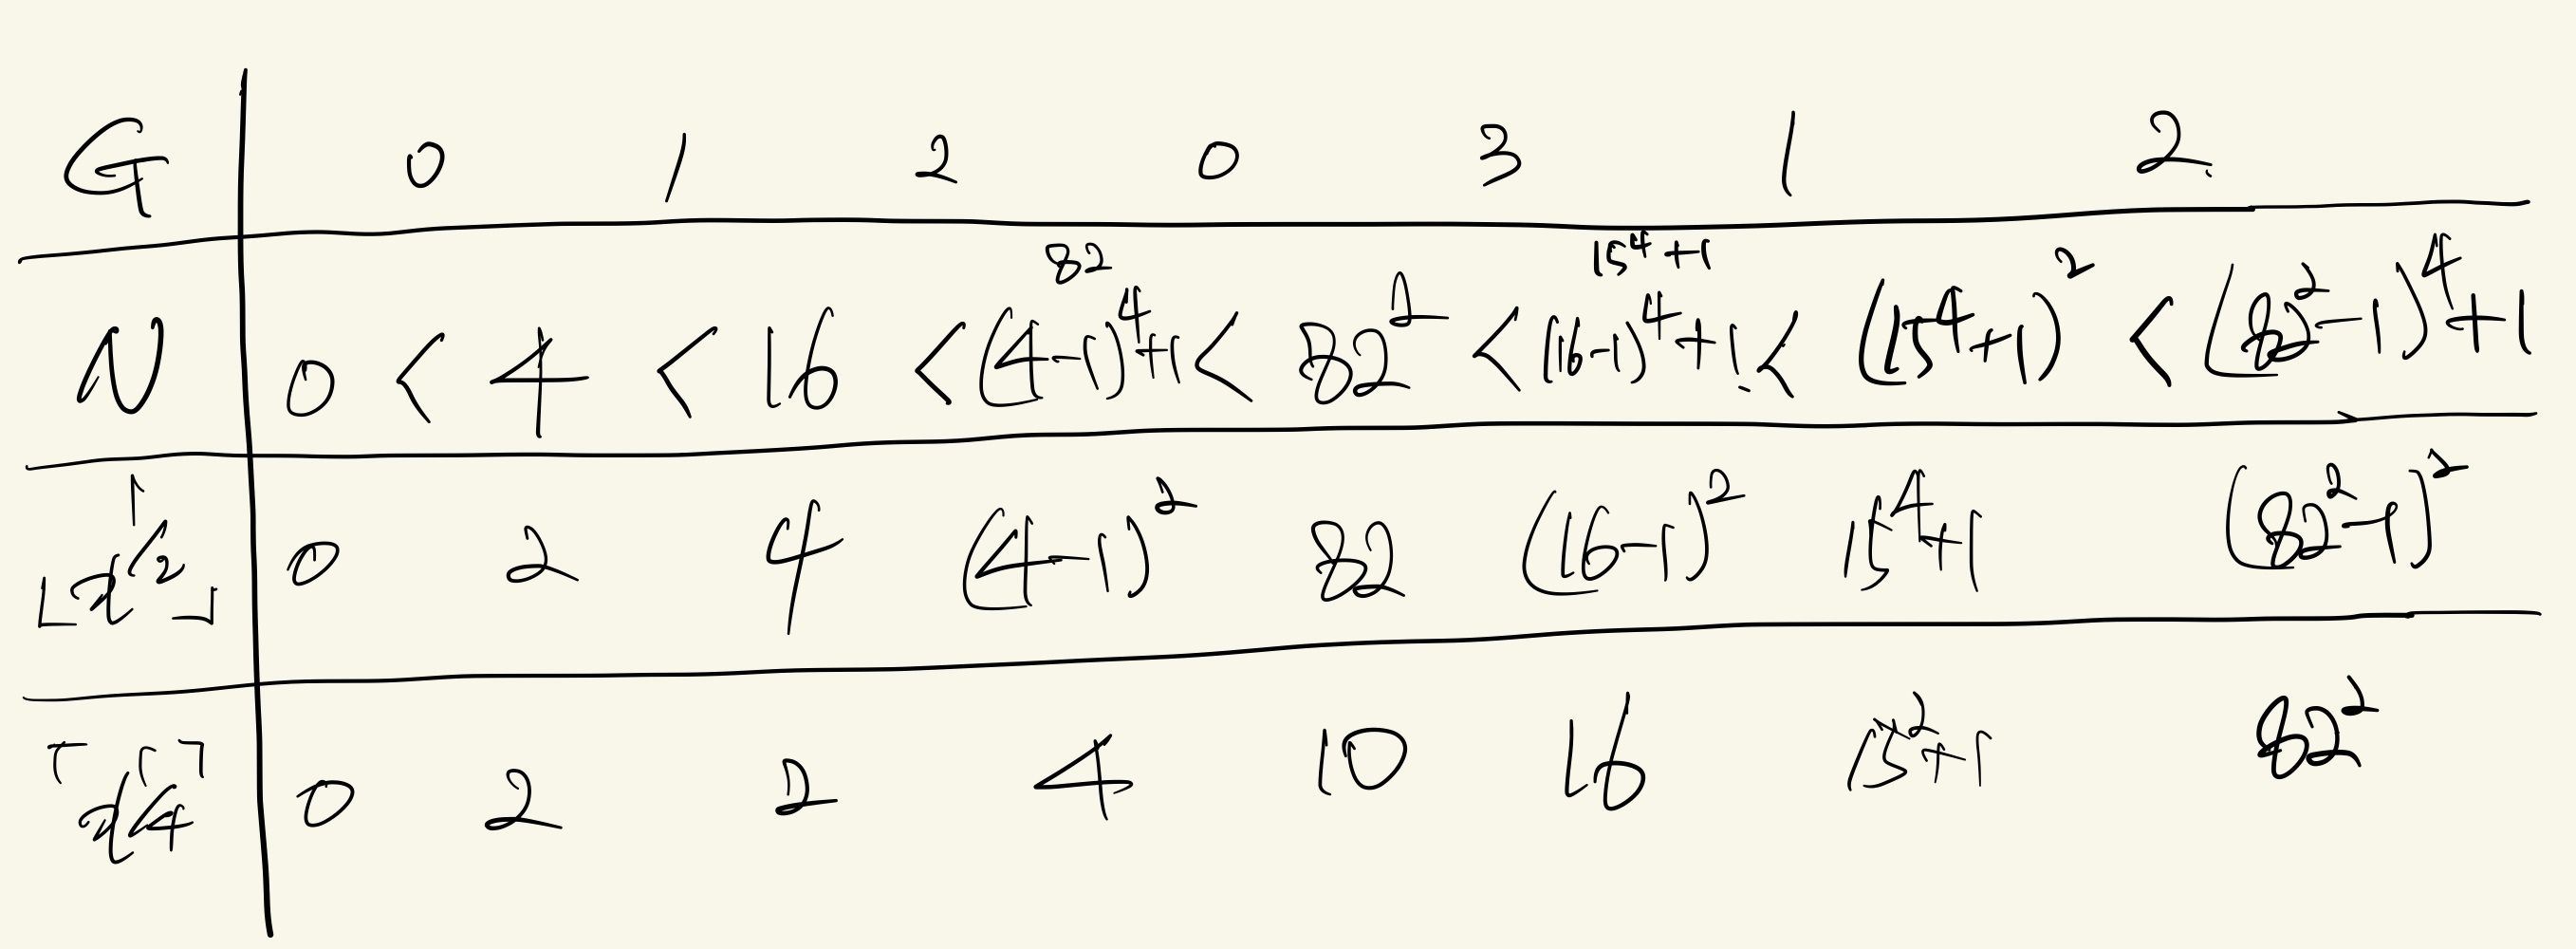 G 0 1 2 0 3 1 2
82 15⁴+1
N 0 < 4 < 16 < (4-1)⁴+1 < 82² < (16-1)⁴+1 < (15⁴+1)² < (82²-1)⁴+1
⌊x^1/2⌋ 0 2 4 (4-1)² 82 (16-1)² 15⁴+1 (82²-1)²
⌈x^1/4⌉ 0 2 2 4 10 16 15²+1 82²